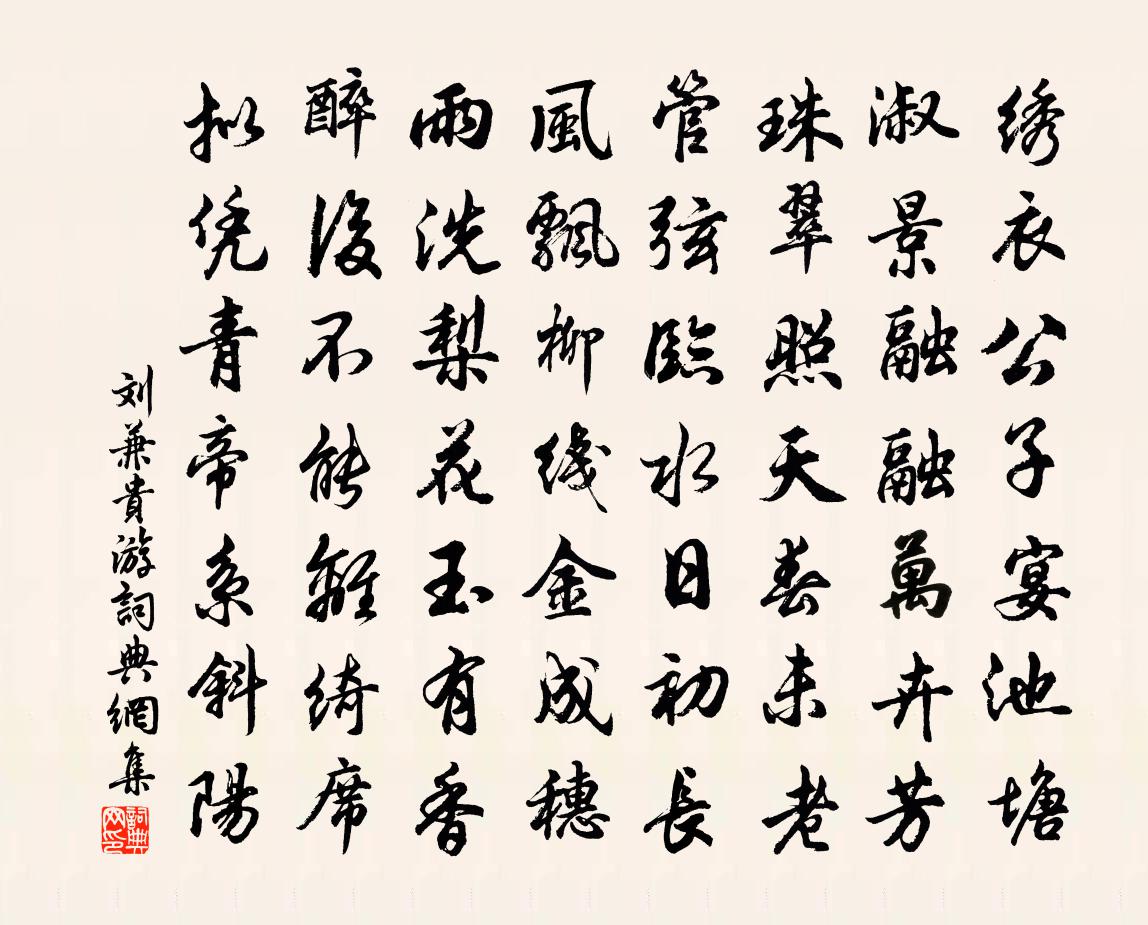 绣衣公子宴池塘
淑景融融萬卉芳
珠翠照天春未老
管弦臨水日初長
風飄柳线金成穗
雨洗梨花玉有香
醉後不能離绮席
拟凭青帝系斜陽
刘兼貴游詞典網集
詞典网印